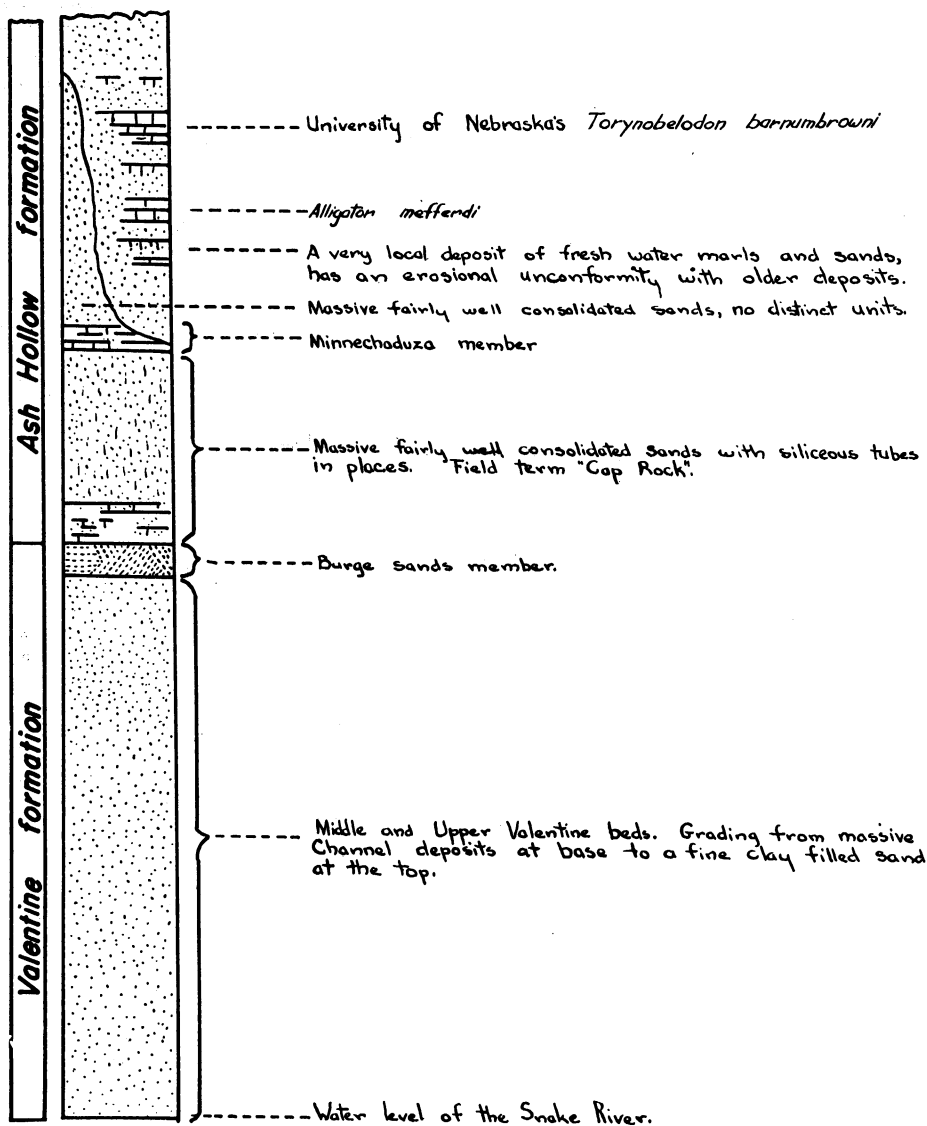 Ash Hollow formation
University of Nebraska's Torynobelodon barnumbrowni
Alligator mefferdi
A very local deposit of fresh water marls and sands,
has an erosional unconformity with older deposits.
Massive fairly well consolidated sands, no distinct units.
Minnechaduza member
Massive fairly well consolidated sands with siliceous tubes
in places. Field term "Cap Rock".
Burge sands member.
Valentine formation
Middle and Upper Valentine beds. Grading from massive
Channel deposits at base to a fine clay filled sand
at the top.
Water level of the Snake River.